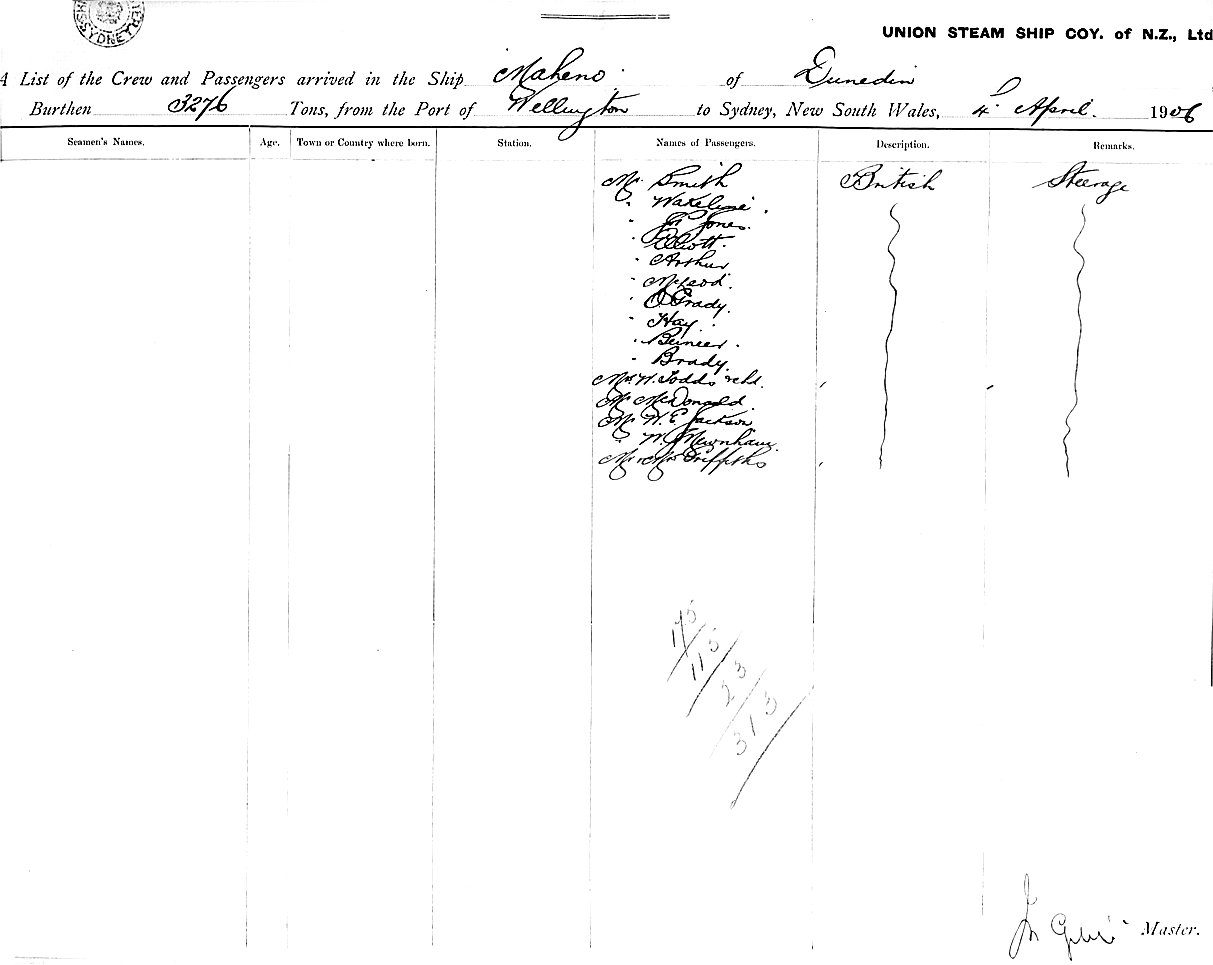 SYDNEY
UNION STEAM SHIP COY. of N.Z., Ltd
A List of the Crew and Passengers arrived in the Ship Maheno of Dunedin
Burthen 3276 Tons, from the Port of Wellington to Sydney, New South Wales, 4 April. 1906
Seamen's Names. Age. Town or Country where born. Station. Names of Passengers. Description. Remarks.
Mr Smith British Steerage
" 
" Jones.
" Elliott.
" Arthur
" McLeod.
" O'Grady.
" Hay.
" 
" Brady.
Mrs W. Todd
Mr McDonald.
Mr W. E. Jackson
" W. J. Mewnham
Mr & Mrs Griffiths
175
115
23
313
Master.